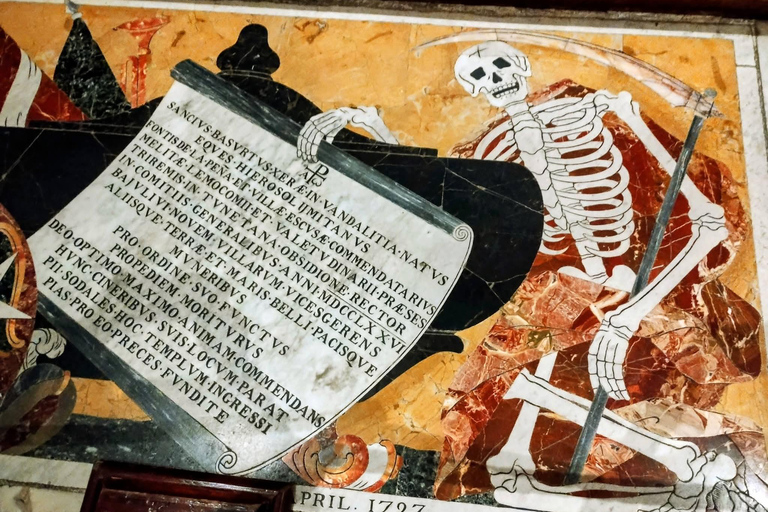 SANCIVS·BASVRTVS·XERÆ·IN·VANDALITIA·NATVS
EQVES·HIEROSOLIMITANVS
FONTIS·DE·LA·PENA·ET·VILLÆ·ESCVSÆ·COMMENDATARIVS
MELITÆ·ELEMOCOMIF·ET·VALETVDINARII·PRÆSES
TRIREMIS·IN·TVNETANA·OBSIDIONE·RECTOR
IN·COMITIIS·GENERALIBVS·ANNI·MDCCLXXVI
BAIVLIVI·NOVEM·VILLARVM·VICES·GERENS
ALIISQVE·TERRÆ·ET·MARIS·BELLI·PACISQVE
MVNERIBVS
PRO·ORDINE·SVO·FVNCTVS
PROPEDIEM·MORITVRVS
DEO·OPTIMO·MAXIMO·ANIMAM·COMMENDANS
HVNC·CINERIBVS·SVIS·LOCVM·PARAT
PII·SODALES·HOC·TEMPLVM·INGRESSI
PIAS·PRO·EO·PRECES·FVNDITE
PRIL. 1727